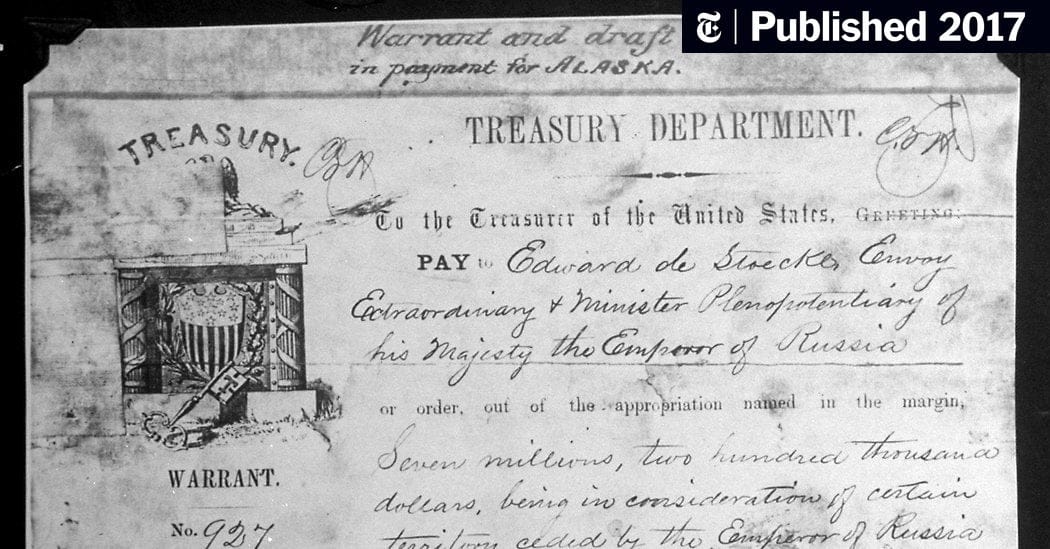 Published 2017
Warrant and draft
in payment for ALASKA.
TREASURY DEPARTMENT.
TREASURY.
To the Treasurer of the United States, GREETING:
PAY to Edward de Stoeckl, Envoy
Extraordinary & Minister Plenopotentiary of
his Majesty the Emperor of Russia
or order, out of the appropriation named in the margin,
Seven millions, two hundred thousand
dollars, being in consideration of certain
territory ceded by the Emperor of Russia
WARRANT.
No. 927